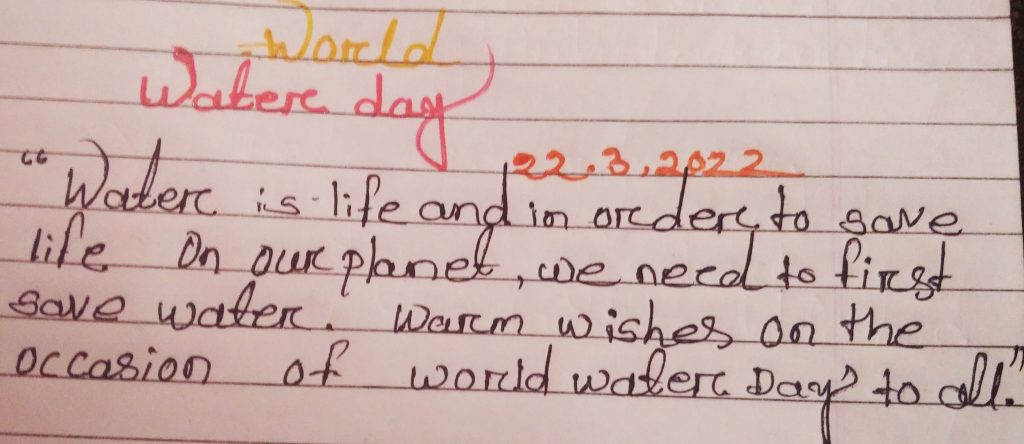 World
Water day
22.3.2022
"Water is life and in order to save
life on our planet, we need to first
save water. Warm wishes on the
occasion of world water Day to all."